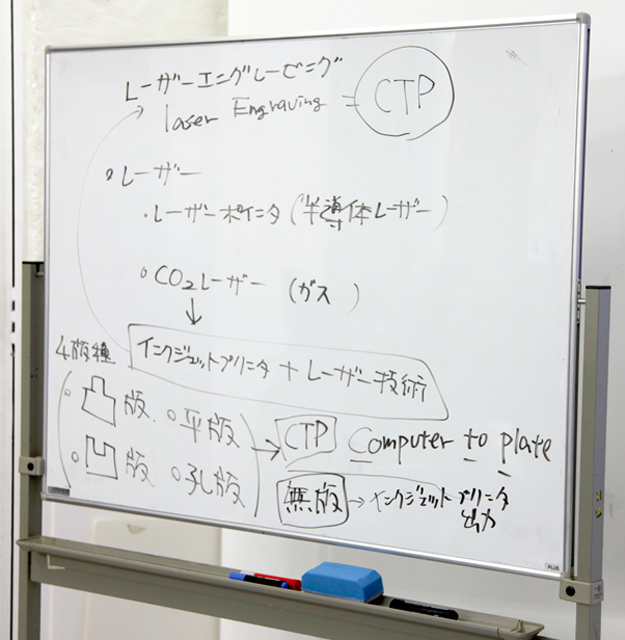 レーザーエングレービング
laser Engraving = CTP
・レーザー
・レーザーポインタ (半導体レーザー)
・CO2レーザー (ガス)
↓
インクジェットプリンタ + レーザー技術
4版種
・凸版 ・平版
・凹版 ・孔版
→ CTP Computer to plate
無版 → インクジェットプリンタ
出力
PLUS